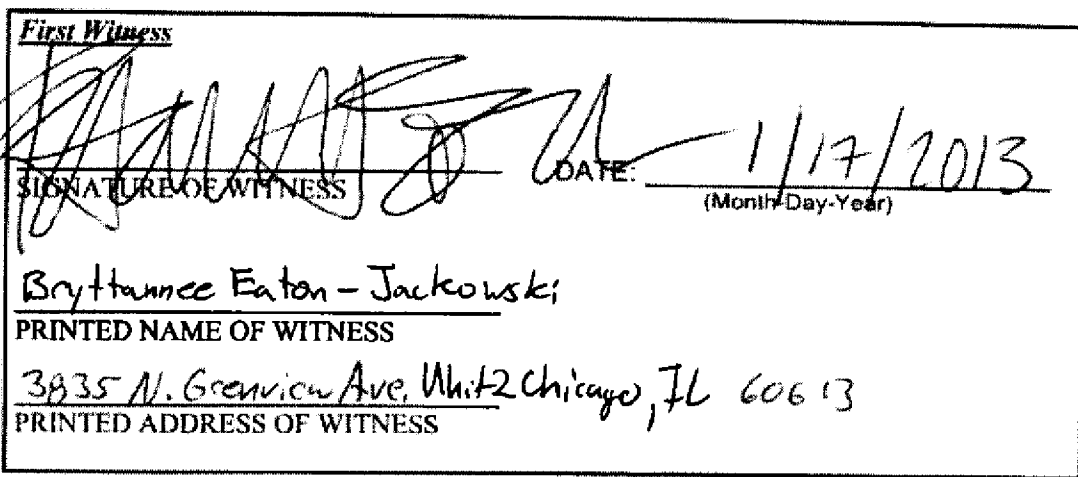 First Witness
SIGNATURE OF WITNESS DATE: 1/17/2013
(Month-Day-Year)
Bryttannee Eaton-Jackowski
PRINTED NAME OF WITNESS
3835 N. Greenview Ave. Unit 2 Chicago, IL 60613
PRINTED ADDRESS OF WITNESS